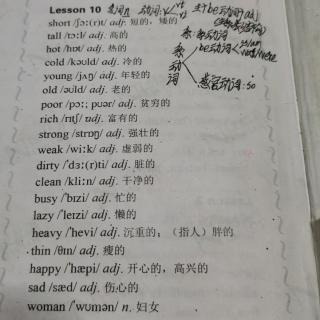 Lesson 10
short /ʃɔː(r)t/ adj. 短的，矮的
tall /tɔːl/ adj. 高的
hot /hɒt/ adj. 热的
cold /kəʊld/ adj. 冷的
young /jʌŋ/ adj. 年轻的
old /əʊld/ adj. 老的
poor /pɔː; pʊər/ adj. 贫穷的
rich /rɪtʃ/ adj. 富有的
strong /strɒŋ/ adj. 强壮的
weak /wiːk/ adj. 虚弱的
dirty /ˈdɜː(r)ti/ adj. 脏的
clean /kliːn/ adj. 干净的
busy /ˈbɪzi/ adj. 忙的
lazy /ˈleɪzi/ adj. 懒的
heavy /ˈhevi/ adj. 沉重的；（指人）胖的
thin /θɪn/ adj. 瘦的
happy /ˈhæpi/ adj. 开心的，高兴的
sad /sæd/ adj. 伤心的
woman /ˈwʊmən/ n. 妇女
动词
be动词
系
动
词